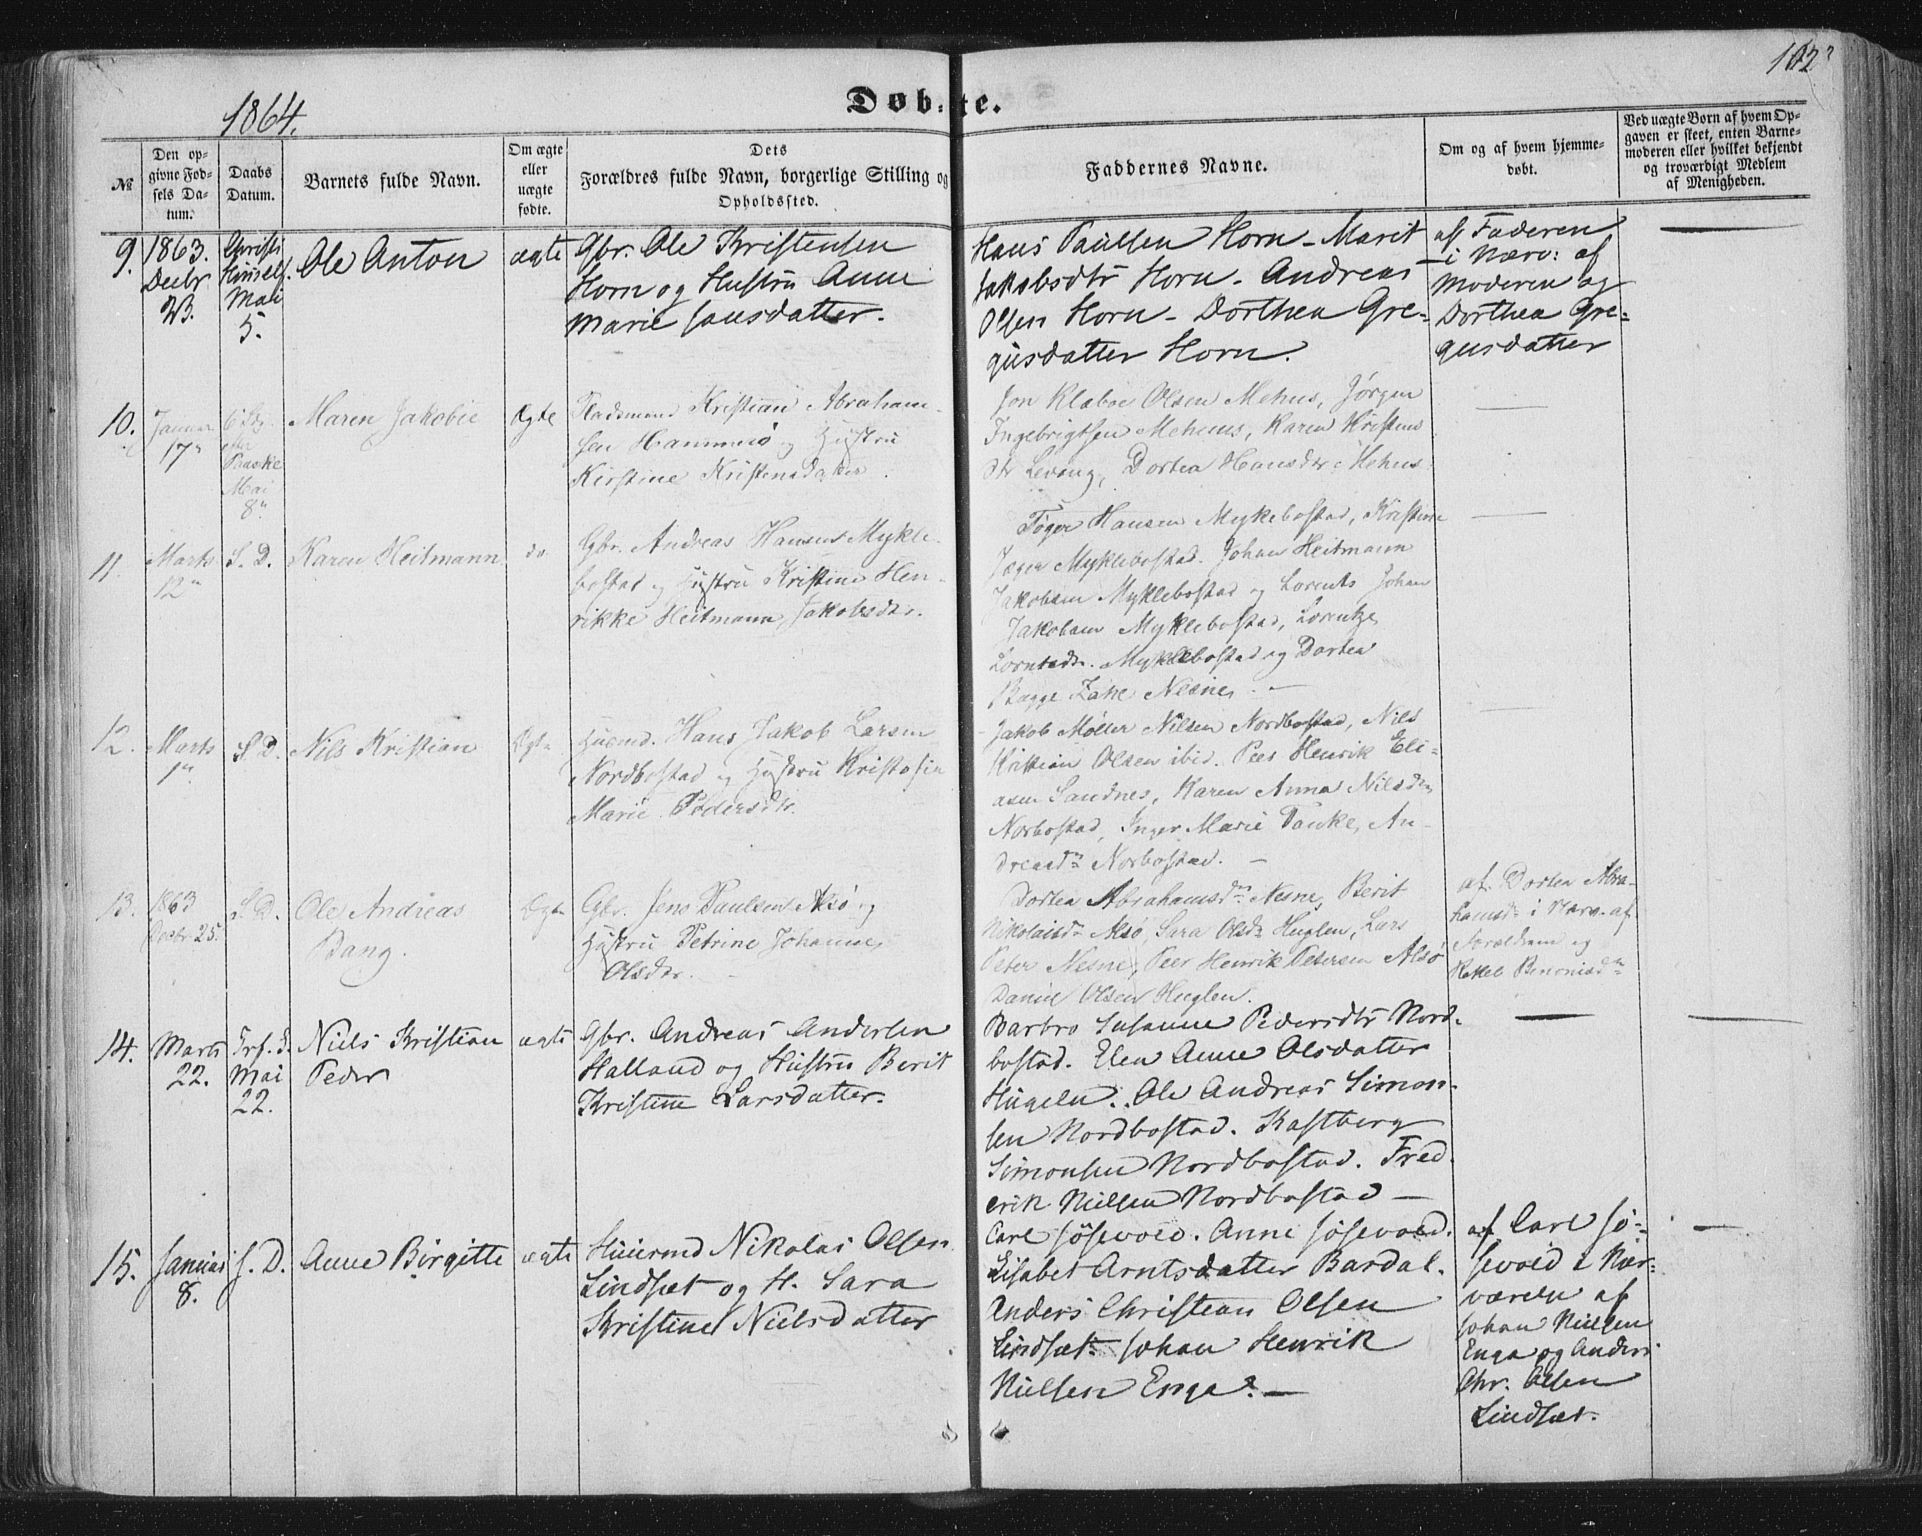 1864.
Døbte.
№
Den op-
givne Fød-
sels Da-
tum.
Daabs
Datum.
Barnets fulde Navn.
Om ægte
eller
uægte
fødte.
Dets
Forældres fulde Navn, borgerlige Stilling og
Opholdssted.
Faddernes Navne.
Om og af hvem hjemme-
døbt.
Ved uægte Børn af hvem Op-
gaven er skeet, enten Barne-
moderen eller hvilket bekjendt
og troværdigt Medlem
af Menigheden.
9.
1863.
Decbr
23.
Christi
Himelf.
Mai
5.
Ole Anton
ægte
Gbr. Ole Kristensen
Horn og Hustru Anne
Marie Jansdatter.
Hans Paulsen Horn - Marit
Jakobsdtr Horn - Andreas
Olsen Horn - Dorthea Gre-
gusdatter Horn.
af Faderen
i Nærv: af
Moderen og
Dorthea Gre-
gusdatter
10.
Januar
17n
6 S.
efter
Paaske
Mai
8n
Maren Jakobie
Ægte
Pladsmand Kristian Abraham-
sen Hammerø og Hustru
Kirstine Kristensdatter.
Jon Klæboe Olsen Mehus, Jørgen
Ingebrigtsen Mehus, Karen Kristens
dtr Levang, Dortea Hansdtr Mehus.
11.
Marts
12n
S. D.
Karen Heitmann
do
Gbr. Andreas Hansen Mykle-
bostad og Hustru Kristine Hen-
rikke Heitmann, Jakobsdtr.
Tøger Hansen Myklebostad, Kristine
Jæger Myklebostad. Johan Heitmann
Jakobsen Myklebostad og Lorents Johan
Jakobsen Myklebostad, Lorentze
Lorntsdr. Myklebostad og Dortea
Bagge Zahl Nesne. -
12.
Marts
1n
S. D.
Nils Kristian
Ægte
Husmd. Hans Jakob Larsen
Nordbostad og Hustru Kristofia
Marie Pedersdtr.
Jakob Møller Nilsen Nordbostad, Nils
Kristian Olsen ibid. Peer Henrik Eli-
asen Sandnes, Karen Anna Nilsdr
Norbostad, Inger Marie Pauke, An-
dreasdr Norbostad. -
13.
1863
Decbr 25.
S. D.
Ole Andreas
Bang.
Ægte
Gbr. Jens Paulsen Alsø og
Hustru Petrine Johanne
Olsdtr. -
Dortea Abrahamsdr Nesne, Berit
Nikolaisdr Alsø, Sara Olsdr Huglen, Lars
Peter Nesne, Peer Henrik Petersen Alsø
Daniel Olsen Huglen.
af. Dortea Abra-
hamsdr i Nærv. af
Forældrene og
Rakel Benonisdr
14.
Marts
22.
Trf. S.
Mai
22.
Niels Kristian
Peder
ægte
Gbr. Andreas Andersen
Halland og Hustru Berit
Kristine Larsdatter.
Barbro Susanne Pedersdtr Nord-
bostad. Elen Anne Olsdatter
Hugeln. Ole Andreas Simon-
sen Nordbostad. Kastberg
Simonsen Nordbostad. Fred-
erik Nielsen Nordbostad -
15.
Januar
8.
S. D.
Anne Birgitte
ægte
Huusmd Nikolai Olsen
Lindset og H. Sara
Kristine Nielsdatter
Carl Jøsevold. Anne Jøsevold.
Lisabet Arntsdatter Bardal.
Anders Christian Olsen
Lindset. Johan Henrik
Nielsen Enga. -
af Carl Jø-
sevold i Nær-
værelse af
Johan Nielsen
Enga og Anders
Chr. Olsen
Lindset.